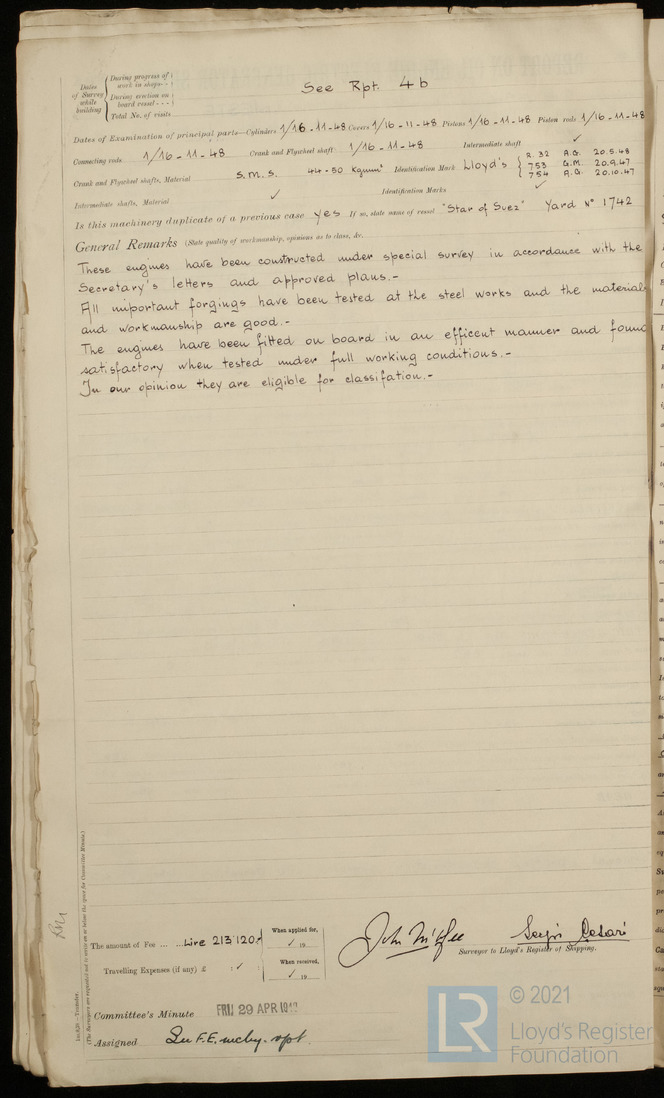 Dates of Survey while building
During progress of work in shops - -
During erection on board vessel - - -
Total No. of visits
See Rpt. 4b
Dates of Examination of principal parts—Cylinders 1/16 - 11 - 48 Covers 1/16 - 11 - 48 Pistons 1/16 - 11 - 48 Piston rods 1/16 - 11 - 48
Connecting rods 1/16 - 11 - 48 Crank and Flywheel shaft 1/16 - 11 - 48 Intermediate shaft ✓
Crank and Flywheel shafts, Material S.M.S. 44-50 Kg/mm² Identification Mark Lloyd's
R. 32 A.G. 20.5.48
753 G.M. 20.9.47
754 A.G. 20.10.47
Intermediate shafts, Material ✓ Identification Marks ✓
Is this machinery duplicate of a previous case yes If so, state name of vessel "Star of Suez" Yard No 1742
General Remarks (State quality of workmanship, opinions as to class, &c.
These engines have been constructed under special survey in accordance with the
Secretary's letters and approved plans.-
All important forgings have been tested at the steel works and the materials
and workmanship are good.-
The engines have been fitted on board in an efficent manner and found
satisfactory when tested under full working conditions.-
In our opinion they are eligible for classifation.-
(The Surveyors are requested not to write on or below the space for Committee Minute.)
The amount of Fee ... ... Lire 213'120
When applied for, ✓ 19
Travelling Expenses (if any) £ : ✓ :
When received, ✓ 19
John McAfee
Sergio Cesari
Surveyor to Lloyd's Register of Shipping.
Committee's Minute FRI 29 APR 1949
Assigned See F.E. mchy. rpt.
LR
© 2021
Lloyd's Register
Foundation